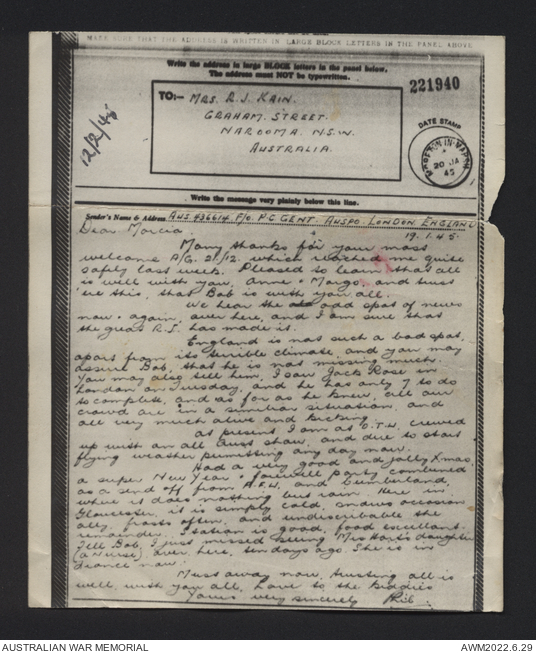 MAKE SURE THAT THE ADDRESS IS WRITTEN IN LARGE BLOCK LETTERS IN THE PANEL ABOVE
Write the address in large BLOCK letters in the panel below.
The address must NOT be typewritten.
221940
TO:— MRS. R. J. KAIN.
GRAHAM. STREET.
NAROOMA. N.S.W.
AUSTRALIA.
12/2/45
DATE STAMP
20 JA
45
Write the message very plainly below this line.
Sender's Name & Address AUS 436614. F/O. P. G. GENT. AUSPO. LONDON. ENGLAND
19.1.45.
Dear Marcia
Many thanks for your most
welcome A/G. 21/12. which reached me quite
safely last week. Pleased to learn that all
is well with you, Anne & Margo, and trust
'ere this, that Bob is with you all.
We hear the odd spot of news
now & again, over here, and I am sure that
the great R.J. has made it.
England is not such a bad spot,
apart from its terrible climate, and you may
assure Bob, that he is not missing much.
You may also tell him, I saw Jack Rose in
London on Tuesday, and he has only 7 to do
to complete, and as far as he knew, all our
crowd are in a similar situation, and
all very much alive and kicking.
At present I am at O.T.U. crewed
up with an all Aust show, and due to start
flying weather permitting any day now.
Had a very good and jolly Xmas,
a super New Year & farewell party combined
as a send off from A.F.U. and Cumberland,
where it does nothing but rain. Here in
Gloucester, it is simply cold, snows occasion
ally, frosts often, and undescribable the
remainder. Station is good, food excellent.
Tell Bob, I just missed seeing Mrs Hart's daughter
(a Nurse), over here, ten days ago. She is in
France now.
Must away now, trusting all is
well, with you all, love to the kiddies
Yours very sincerely Phil
AUSTRALIAN WAR MEMORIAL
AWM2022.6.29